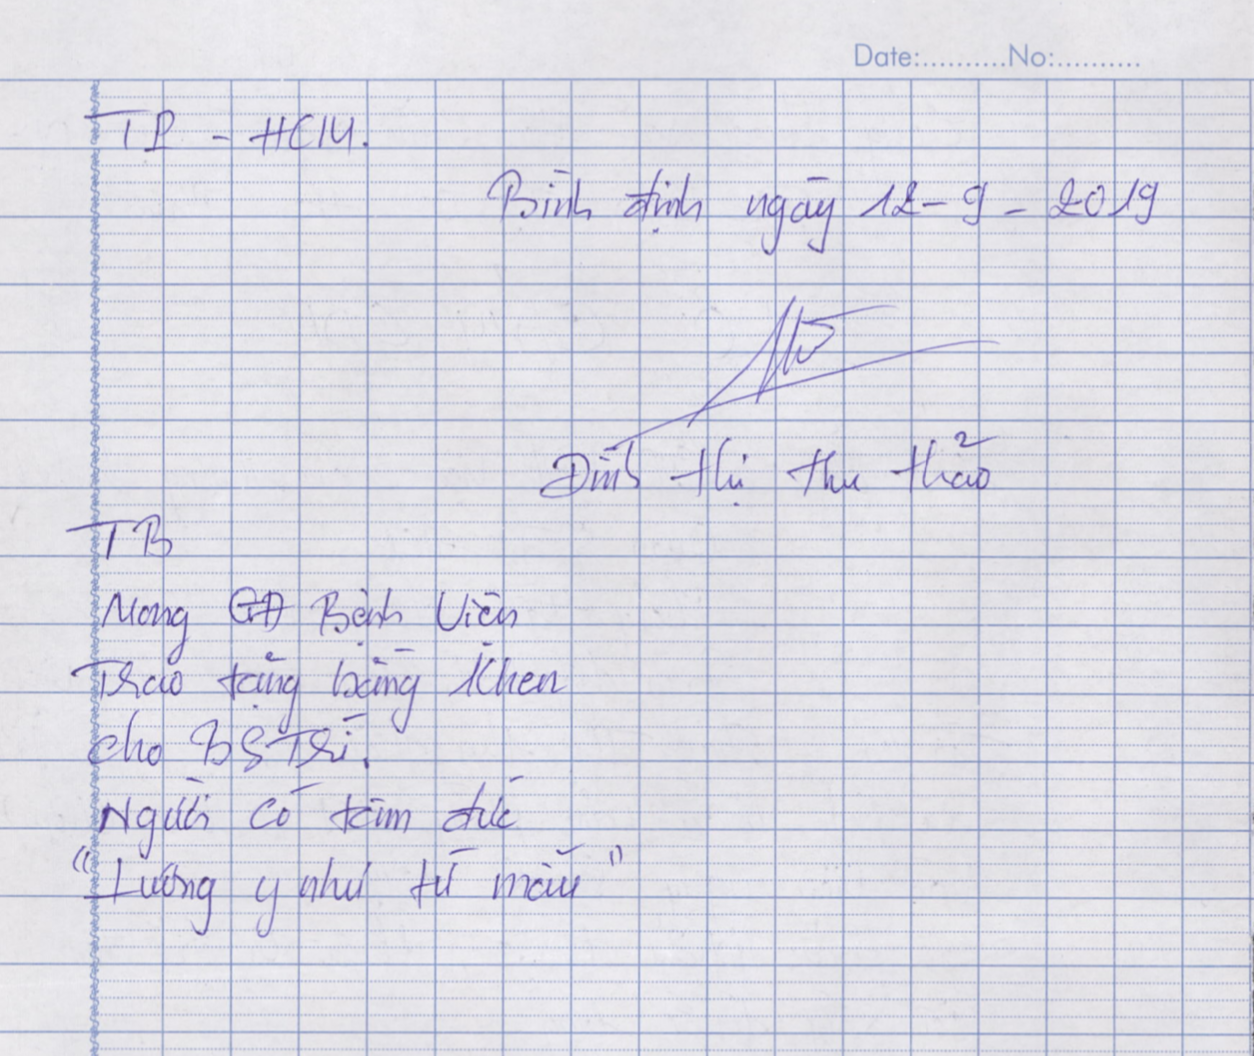 Date:..........No:..........
TP - HCM.
Bình định ngày 12-9-2019
Đinh thị thu thảo
TB
Mong GĐ Bệnh Viện
Trao tặng bằng Khen
cho BS Trí.
Người có tâm đức
"Lương y như từ mẫu"